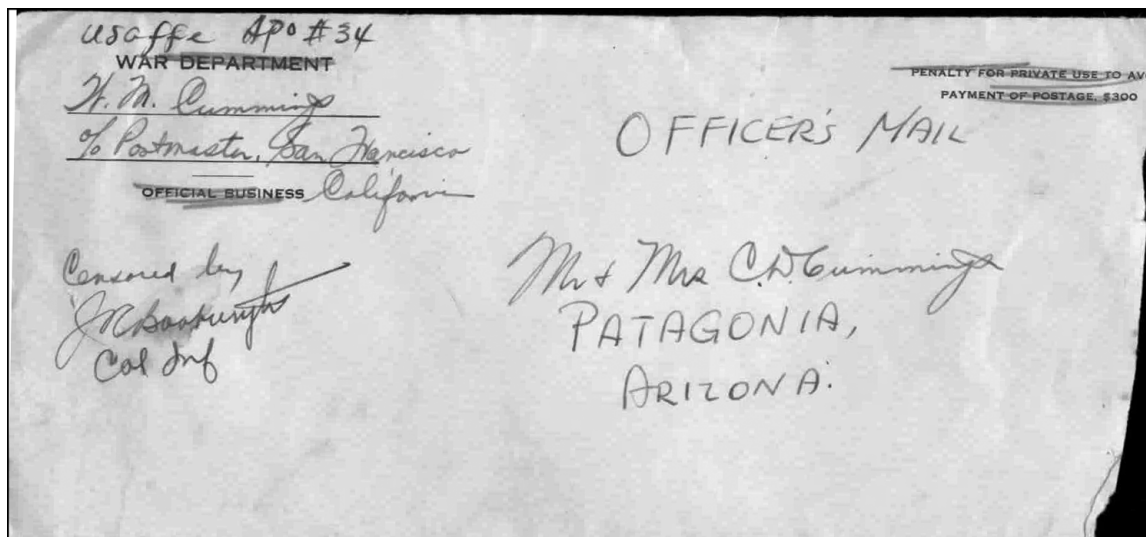 usaffe APO #34
WAR DEPARTMENT
W. M. Cummings
c/o Postmaster, San Francisco
OFFICIAL BUSINESS California
PENALTY FOR PRIVATE USE TO AV
PAYMENT OF POSTAGE, $300
OFFICER'S MAIL
Censored by
Col Inf
Mr & Mrs C.D. Cummings
PATAGONIA,
ARIZONA.